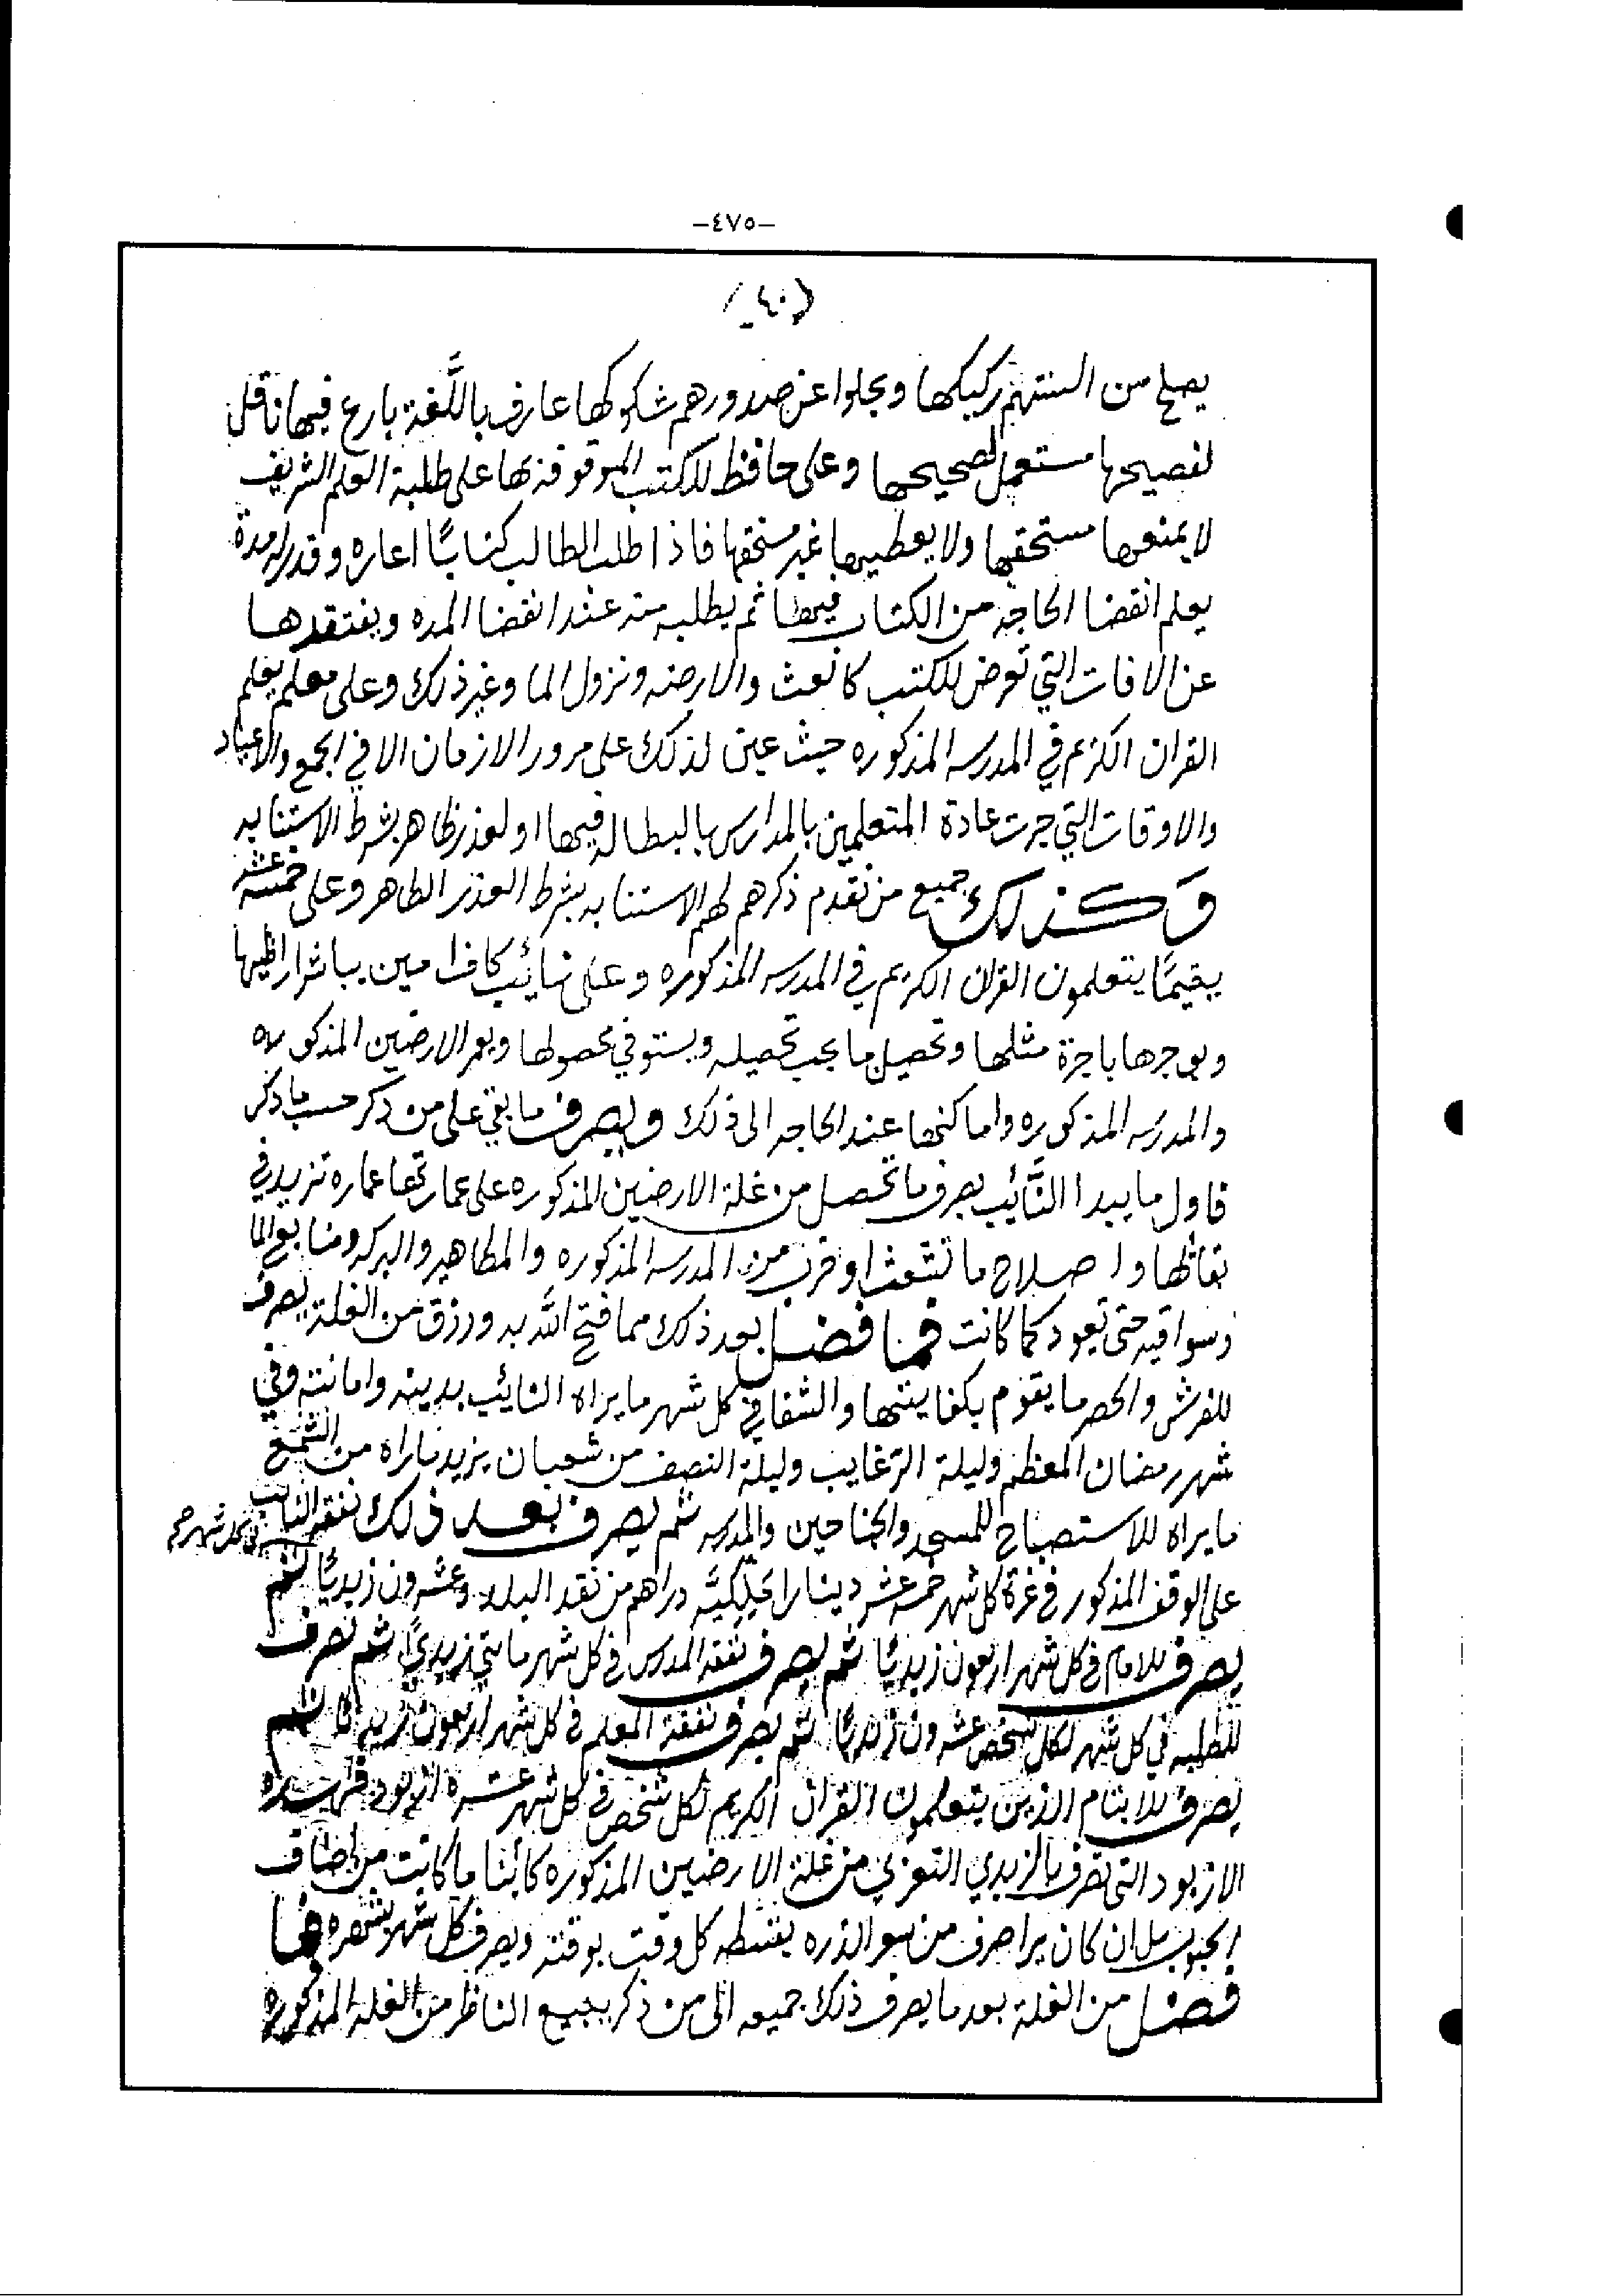 -٤٧٥-
(٤٠)
يصلح من السنتهم ركيكها ويجلوا عن صدورهم شكوكها عارف باللَّغة بارع فيها ناقل
لفصيحها مستعمل لصحيحها وعلى حافظ للكتب الموقوفة بها على طلبة العلم الشريف
لا يمنعها مستحقها ولا يعطيها غير مستحقها فاذا طلب الطالب كتابًا اعاره وقدر له مدة
يعلم انقضا الحاجه من الكتاب فيها ثم يطلبه منه عند انقضا المده ويفتقدها
عن الافات التي تعرض للكتب كالعث والارضه ونزول الما وغير ذلك وعلى معلم يعلم
القران الكريم في المدرسه المذكوره حيث عين لذلك على مرور الازمان الا في الجمع والاعياد
والاوقات التي جرت عادة المتعلمين بالمدارس بالبطاله فيها او لعذر ظاهر بشرط الاستنابه
وكذلك جميع من تقدم ذكرهم لهم الاستنابه بشرط العذر الظاهر وعلى خمسه عشر
يتيمًا يتعلمون القران الكريم في المدرسه المذكوره وعلى نائب كاف امين يباشر اراضيها
ويوجرها باجرة مثلها وتحصيل ما يجب تحصيله ويستوفي محصولها ويعمر الارضين المذكوره
والمدرسه المذكوره واماكنها عند الحاجه الى ذلك ويصرف ما بقي على من ذكر حسب ما ذكر
فاول ما يبدا النَّائب بصرف ما تحصل من غلة الارضين المذكوره على عمارتها عماره تزيد في
بقائها واصلاح ما تشعث او خرب من المدرسه المذكوره والمطاهير والبركه ومنابع الما
وسواقيه حتى تعود كما كانت فما فضل بعد ذلك مما فتح الله به ورزق من الغلة يصرف
للفرش والحصر ما يقوم بكفايتها والشفا في كل شهر ما يراه النائب بدينه وامانته وفي
شهر رمضان المعظم وليلة الرغايب وليلة النصف من شعبان يزيد ماراه من الشمع
ما يراه للاستصباح للمسجد والجناحين والمدرسه ثم يصرف بعد ذلك نفقه النائب
على الوقف المذكور في غرة كل شهر خمسه عشر دينارا دراهم من نقد البلد وعشرون زبديًا ثم
يصرف للامام في كل شهر اربعون زبديًا ثم يصرف نفقه المدرس في كل شهر مايتي زبديًا ثم تصرف
للطلبه في كل شهر لكل شخص عشرون زبديًا ثم يصرف نفقة المعلم في كل شهر اربعون زبديًا ثم
يصرف للايتام الذين يتعلمون القران الكريم لكل شخص في كل شهر عشره ازبود
الازبود التي تصرف بالزبدي التعزي من غلة الارضين المذكوره كائنا ما كانت من اصناف
الحبوب ان كان برا صرف من سعر الذره بقسطه كل وقت بوقته ويصرف كل شهر بشهره فما
فضل من الغلة بعد ما يصرف ذلك جميعه الى من ذكر يجمع الناظر من الغله المذكوره